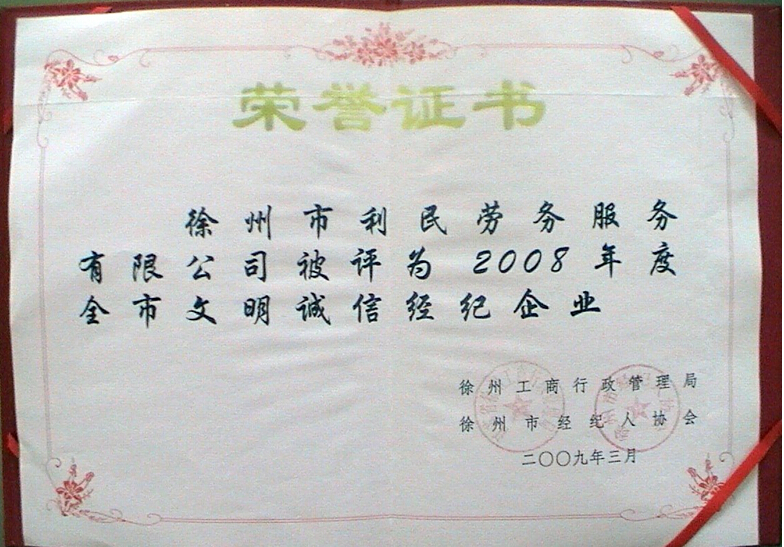 荣誉证书
徐州市利民劳务服务
有限公司被评为2008年度
全市文明诚信经纪企业
徐州工商行政管理局
徐州市经纪人协会
二〇〇九年三月